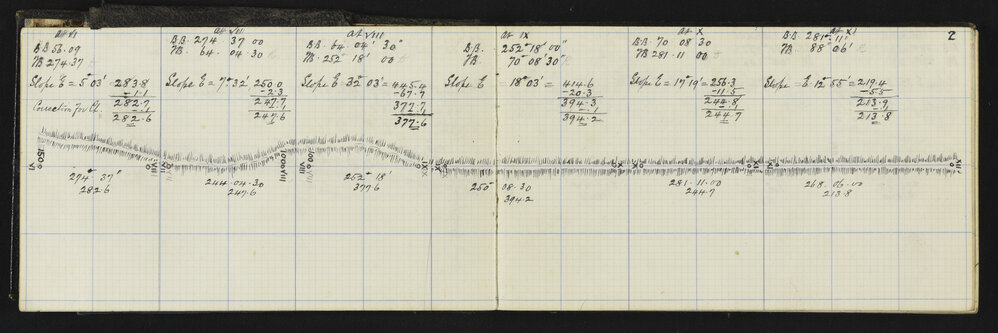 2
at VI
B.B. 56.09
FB 274.37
Slope E = 5° 03' = 283.8
- 1.1
282.7
Correction for Ct. .1
282.6
at VII
B.B. 274 37 00
FB. 64. 04. 30
Slope E = 7° 32' 250.0
- 2.3
247.7
.1
247.6
at VIII
B.B. 64 04' 30"
FB. 252° 18' 00
Slope E 32° 03' = 445.4
- 67.7
377.7
.1
377.6
at IX
B.B. 252° 18' 00"
FB. 70° 08' 30"
Slope E 18° 03' = 414.6
- 20.3
394.3
- .1
394.2
at X
B.B. 70 08 30
FB 281.11 00
Slope E = 17° 19' = 256.3
- 11.5
244.8
.1
244.7
at XI
B.B. 281° 11'
FB. 88° 06'
Slope E 12° 55' = 219.4
- 5.5
213.9
.1
213.8
VI
VII
VIII
IX
X
XI
XII
274° 37'
282.6
244.04.30
247.6
252° 18'
377.6
250° 08.30
394.2
281.11.00
244.7
268.06.00
213.8